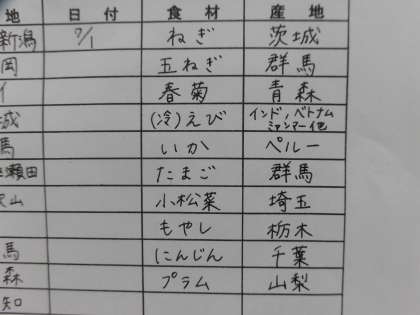 地 日付 食材 産地
新潟 7/1 ねぎ 茨城
岡 玉ねぎ 群馬
イ 春菊 青森
城 (冷)えび インド,ベトナム
ミャンマー他
馬 いか ペルー
瀬田 たまご 群馬
山 小松菜 埼玉
もやし 栃木
馬 にんじん 千葉
森 プラム 山梨
知